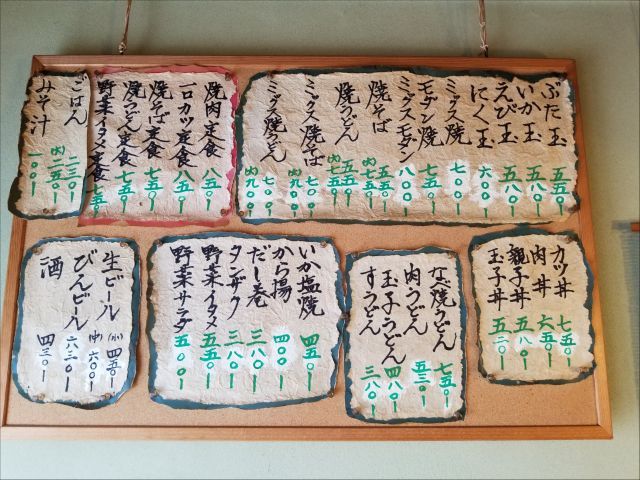 ぶた玉 五五〇ー
いか玉 五八〇ー
えび玉 五八〇ー
にく玉 六〇〇ー
ミックス焼 七〇〇ー
モダン焼 七五〇ー
ミックスモダン 八〇〇ー
焼そば 五五〇ー
焼うどん 五五〇ー
ミックス焼そば 七〇〇ー
(大)九〇〇ー
ミックス焼うどん 七〇〇ー
(大)九〇〇ー
焼肉定食 八五〇ー
一口カツ定食 八五〇ー
焼そば定食 七五〇ー
焼うどん定食 七五〇ー
野菜イタメ定食 七五〇ー
ごはん 二三〇ー
(大)二五〇ー
みそ汁 一〇〇ー
カツ丼 七五〇ー
肉丼 六五〇ー
親子丼 五八〇ー
玉子丼 五二〇ー
なべ焼うどん 七五〇ー
肉うどん 五三〇ー
玉子うどん 四八〇ー
すうどん 三八〇ー
いか塩焼 四五〇ー
から揚 四〇〇ー
だし巻 三八〇ー
タンザク 三八〇ー
野菜イタメ 五五〇ー
野菜サラダ 五〇〇ー
生ビール (小)四五〇ー
(中)六〇〇ー
びんビール 六三〇ー
酒 四三〇ー